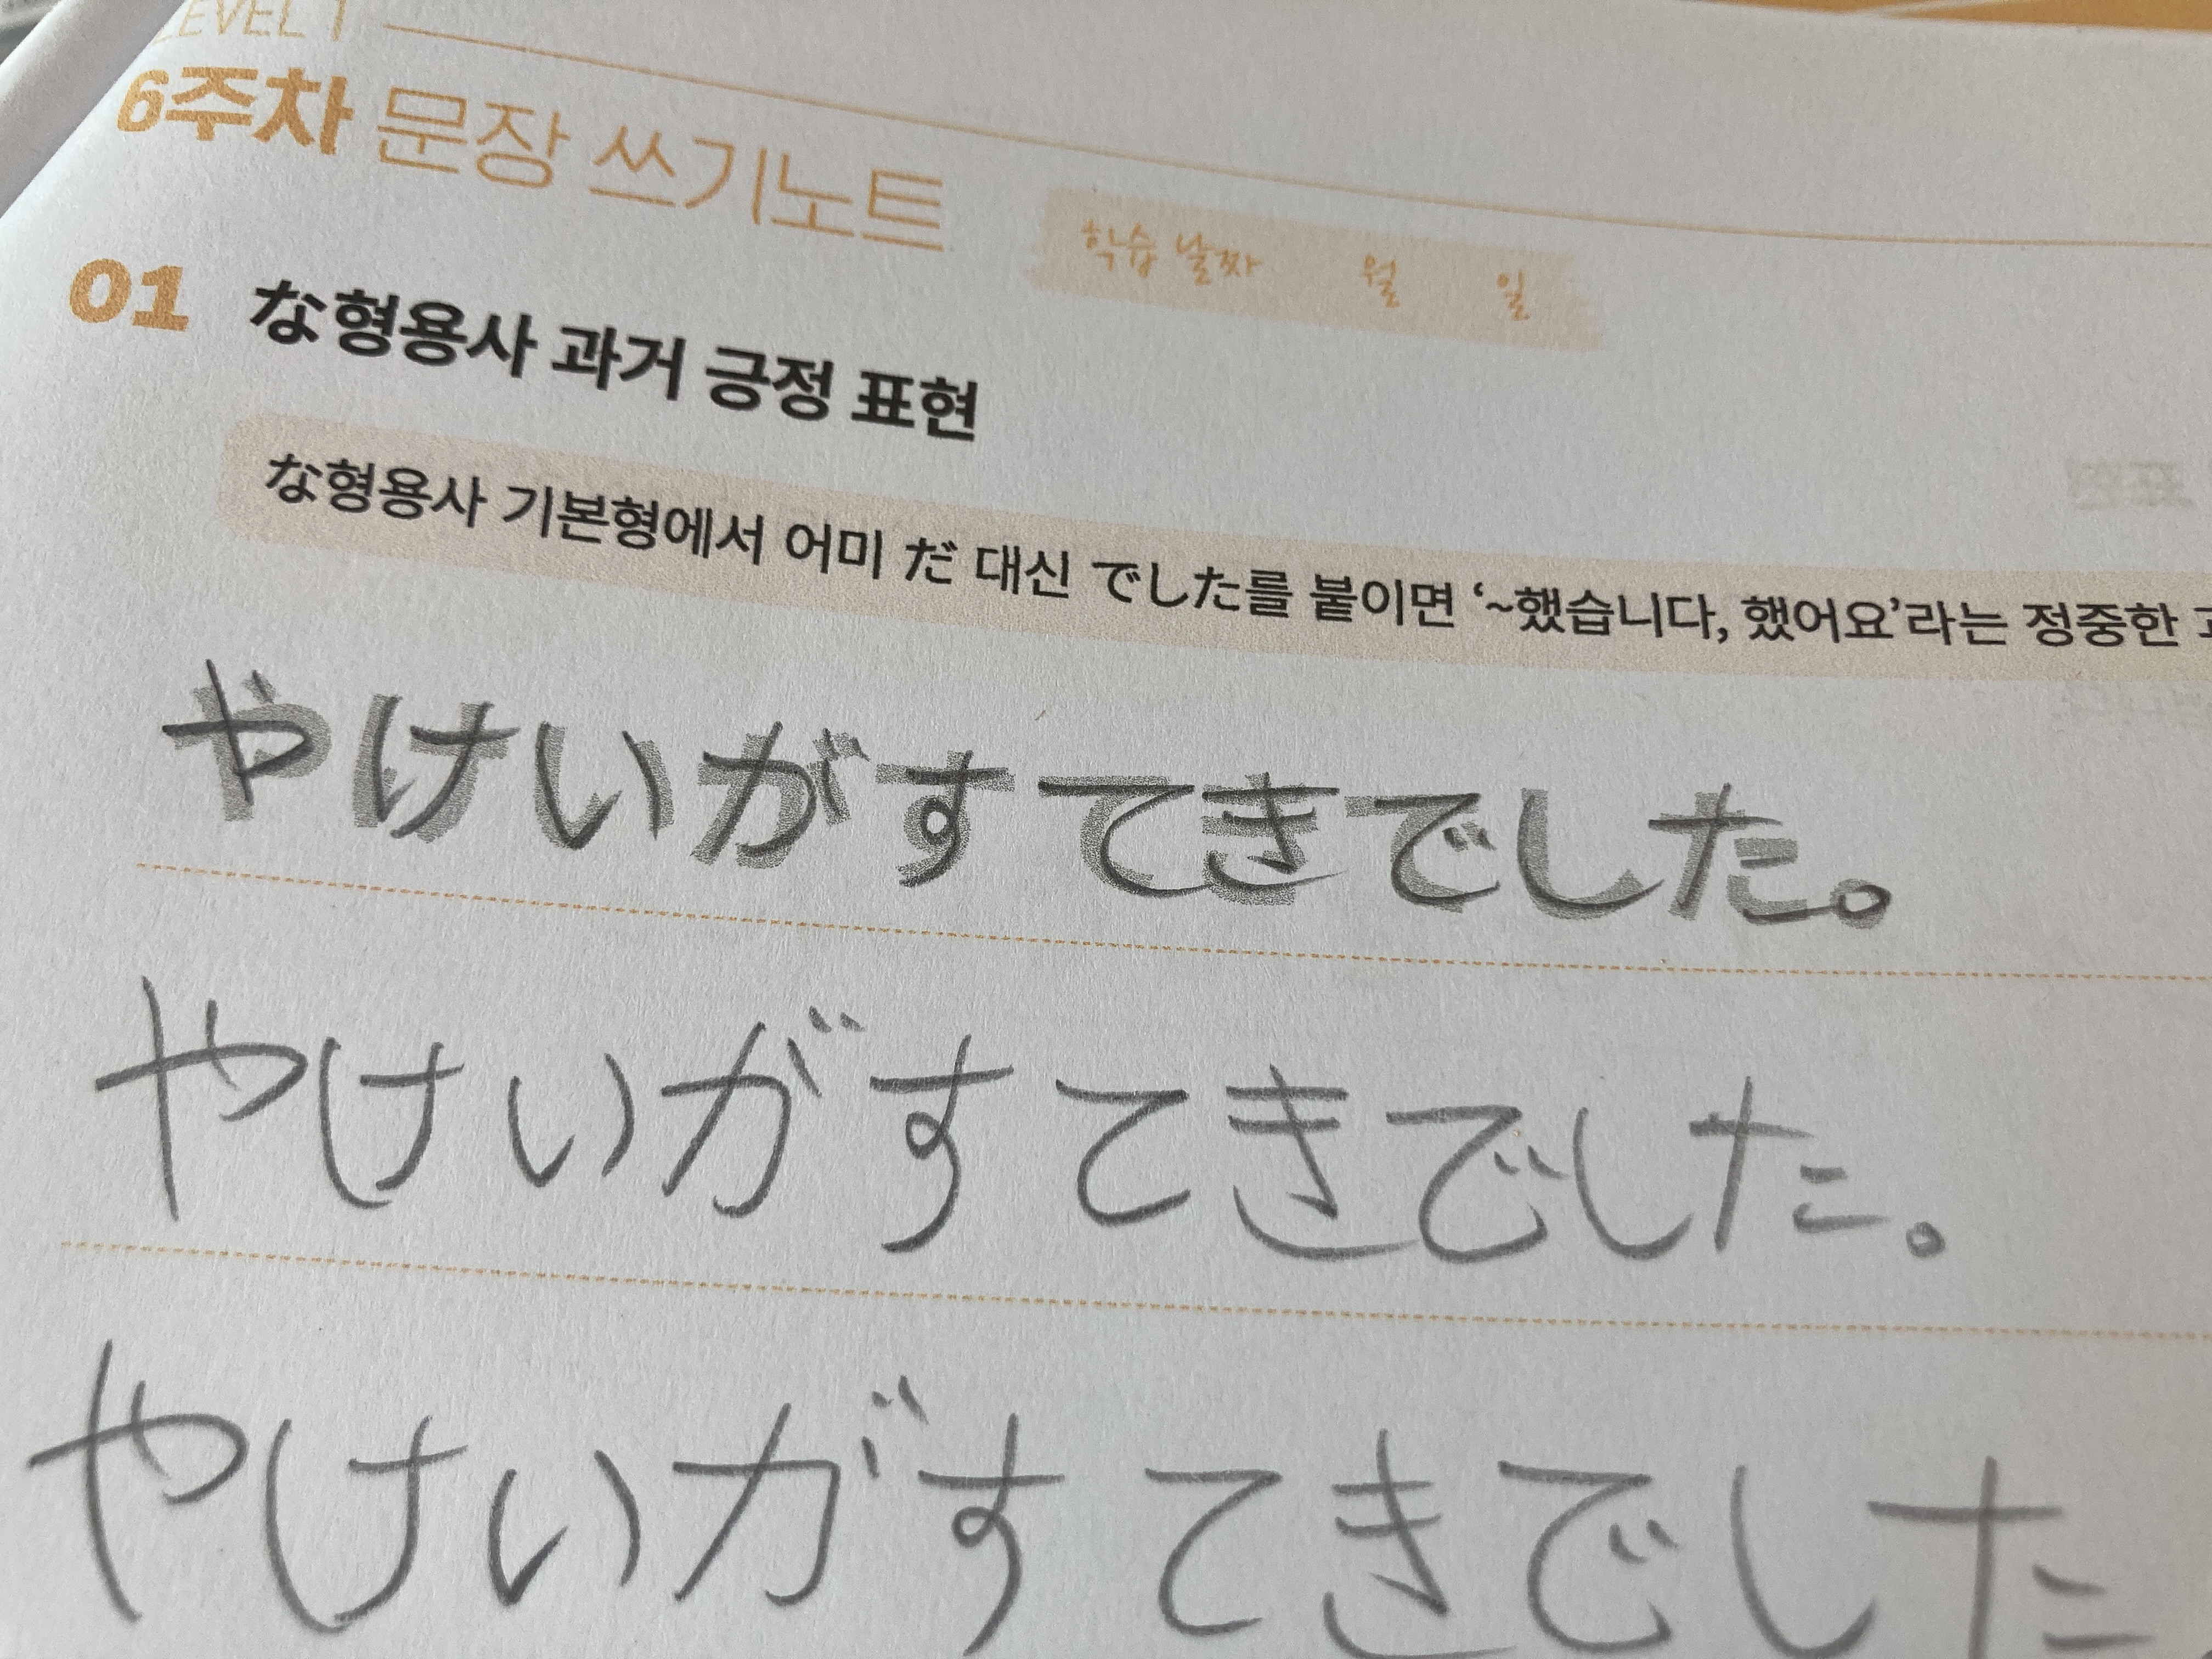 LEVEL 1
6주차 문장 쓰기노트
학습 날짜 월 일
01 な형용사 과거 긍정 표현
な형용사 기본형에서 어미 だ 대신 でした를 붙이면 ‘~했습니다, 했어요’라는 정중한
やけいがすてきでした。
やけいがすてきでした。
やけいがすてきでした